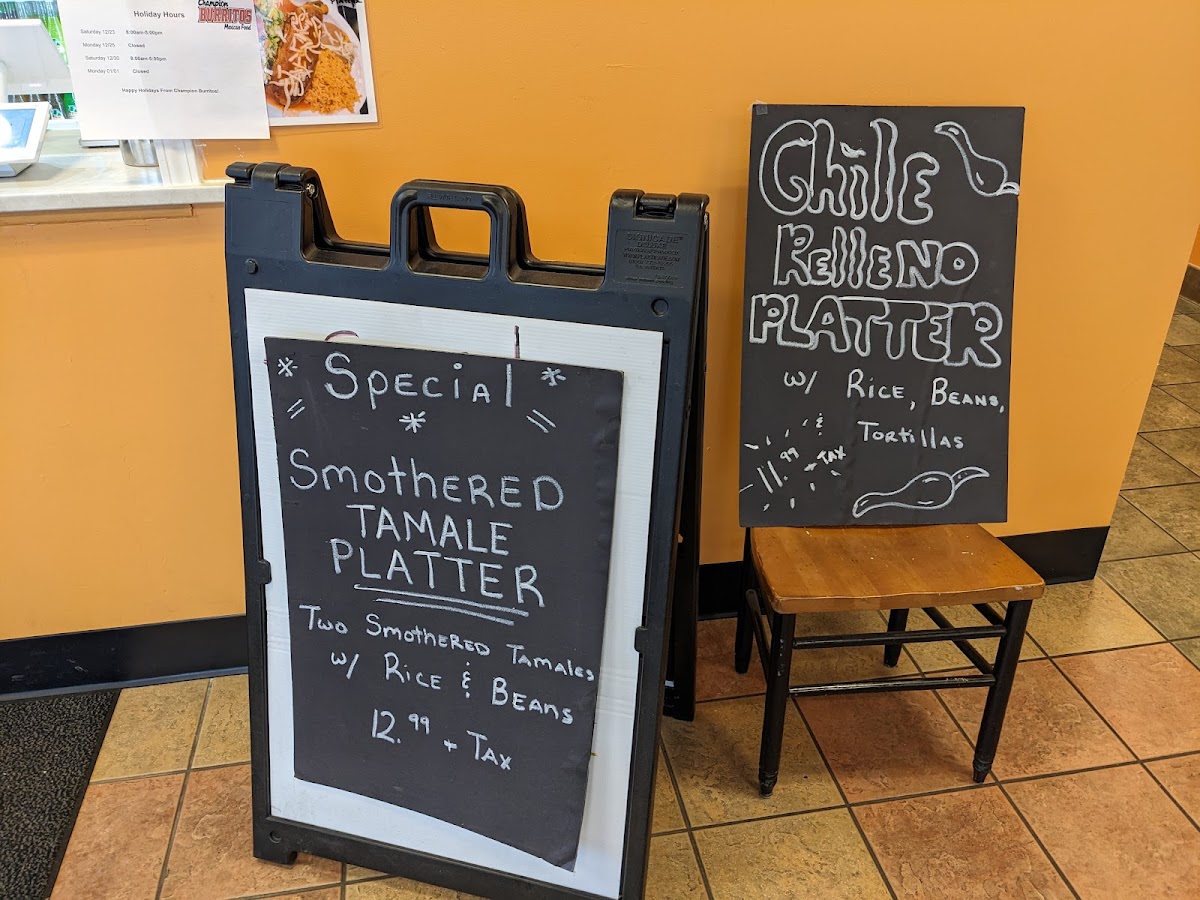 Holiday Hours
Champion
BURRITOS
Mexican Food
Saturday 12/23 8:00am-5:00pm
Monday 12/25 Closed
Saturday 12/30 8:00am-5:00pm
Monday 01/01 Closed
Happy Holidays From Champion Burritos!
* Special *
*
Smothered
TAMALE
PLATTER
Two Smothered Tamales
w/ Rice & Beans
12.99 + Tax
Chile
Relleno
PLATTER
w/ Rice, Beans,
& Tortillas
11.99 + TAX